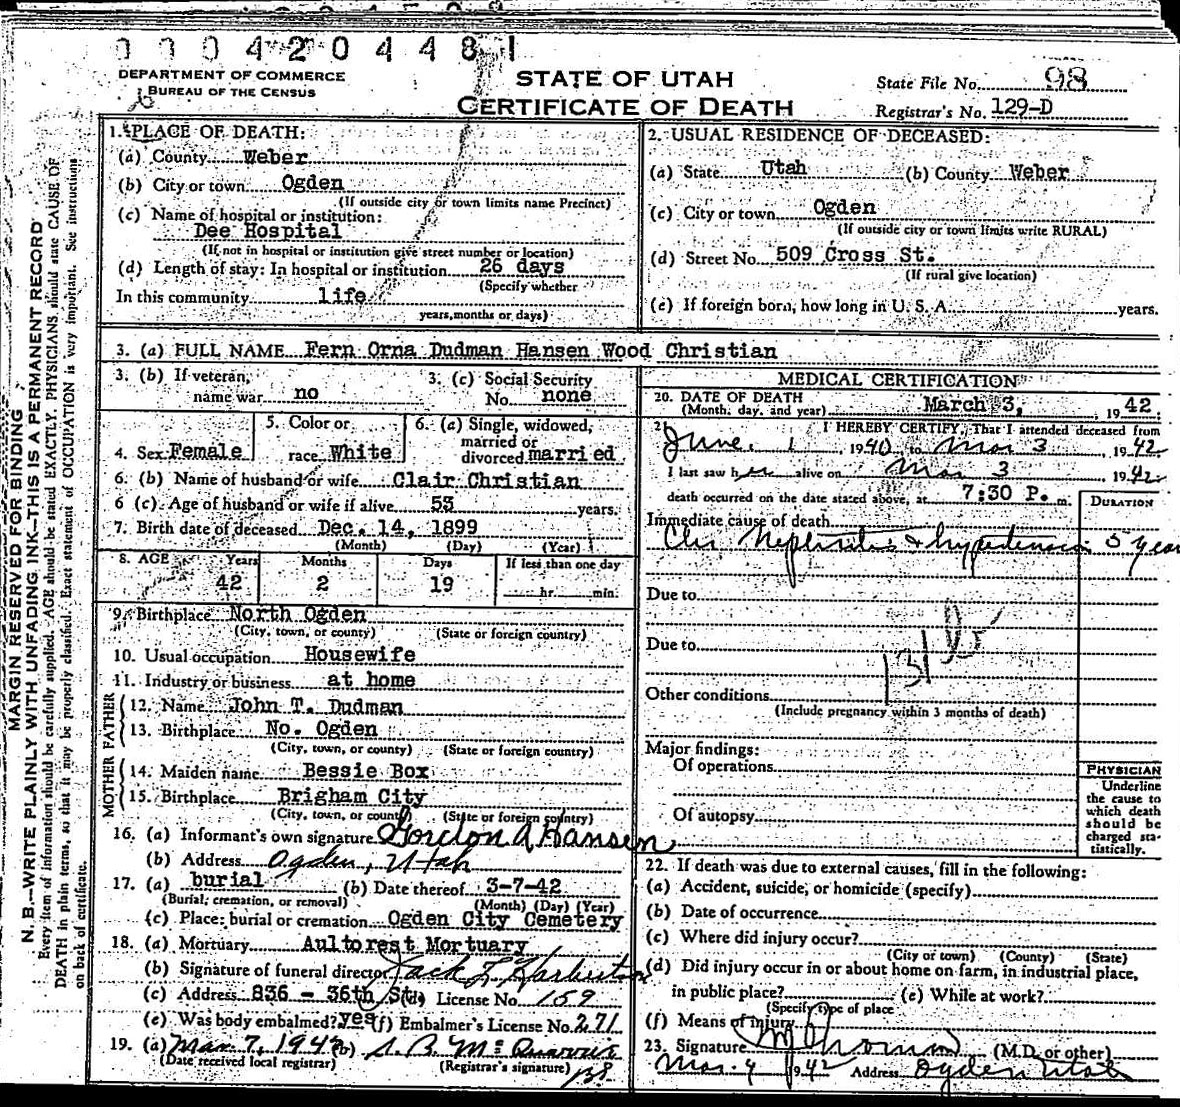 0 0 0 4 2 0 4 4 8 1
DEPARTMENT OF COMMERCE
BUREAU OF THE CENSUS
STATE OF UTAH
CERTIFICATE OF DEATH
State File No. 98
Registrar's No. 129-D
MARGIN RESERVED FOR BINDING
N. B.—WRITE PLAINLY WITH UNFADING INK—THIS IS A PERMANENT RECORD
Every item of information should be carefully supplied. AGE should be stated EXACTLY. PHYSICIANS should state CAUSE OF
DEATH in plain terms, so that it may be properly classified. Exact statement of OCCUPATION is very important. See instructions
on back of certificate.
1. PLACE OF DEATH:
(a) County Weber
(b) City or town Ogden
(If outside city or town limits name Precinct)
(c) Name of hospital or institution:
Dee Hospital
(If not in hospital or institution give street number or location)
(d) Length of stay: In hospital or institution 26 days
(Specify whether
In this community life
years, months or days)
2. USUAL RESIDENCE OF DECEASED:
(a) State Utah (b) County Weber
(c) City or town Ogden
(If outside city or town limits write RURAL)
(d) Street No. 509 Cross St.
(If rural give location)
(e) If foreign born, how long in U. S. A. years.
3. (a) FULL NAME Fern Orna Dudman Hansen Wood Christian
3. (b) If veteran, name war no
3. (c) Social Security No. none
4. Sex Female
5. Color or race White
6. (a) Single, widowed, married or divorced married
6. (b) Name of husband or wife Clair Christian
6 (c) Age of husband or wife if alive 53 years.
7. Birth date of deceased Dec. 14, 1899
(Month) (Day) (Year)
8. AGE Years Months Days If less than one day
42 2 19 hr. min.
9. Birthplace North Ogden
(City, town, or county) (State or foreign country)
10. Usual occupation Housewife
11. Industry or business at home
FATHER
12. Name John T. Dudman
13. Birthplace No. Ogden
(City, town, or county) (State or foreign country)
MOTHER
14. Maiden name Bessie Box
15. Birthplace Brigham City
(City, town, or county) (State or foreign country)
16. (a) Informant's own signature Gordon A Hansen
(b) Address Ogden, Utah
17. (a) burial (b) Date thereof 3-7-42
(Burial, cremation, or removal) (Month) (Day) (Year)
(c) Place: burial or cremation Ogden City Cemetery
18. (a) Mortuary Aultorest Mortuary
(b) Signature of funeral director Jack L
(c) Address 836 - 36th St. (d) License No. 159
(e) Was body embalmed? yes (f) Embalmer's License No. 271
19. (a) Mar 7, 1942 (b)
(Date received local registrar) (Registrar's signature)
MEDICAL CERTIFICATION
20. DATE OF DEATH March 3, 1942
(Month, day, and year)
21. I HEREBY CERTIFY, That I attended deceased from
June 1 1940, to Mar 3, 1942
I last saw her alive on Mar 3 1942
death occurred on the date stated above, at 7:30 P. m.
DURATION
Immediate cause of death
Chr Nephritis + hypertension 5 year
Due to
Due to
Other conditions
(Include pregnancy within 3 months of death)
Major findings:
Of operations
Of autopsy
PHYSICIAN
Underline
the cause to
which death
should be
charged sta-
tistically.
22. If death was due to external causes, fill in the following:
(a) Accident, suicide, or homicide (specify)
(b) Date of occurrence
(c) Where did injury occur?
(City or town) (County) (State)
(d) Did injury occur in or about home on farm, in industrial place,
in public place? (e) While at work?
(Specify type of place
(f) Means of injury
23. Signature (M.D. or other)
Mar. 4 1942 Address Ogden Utah